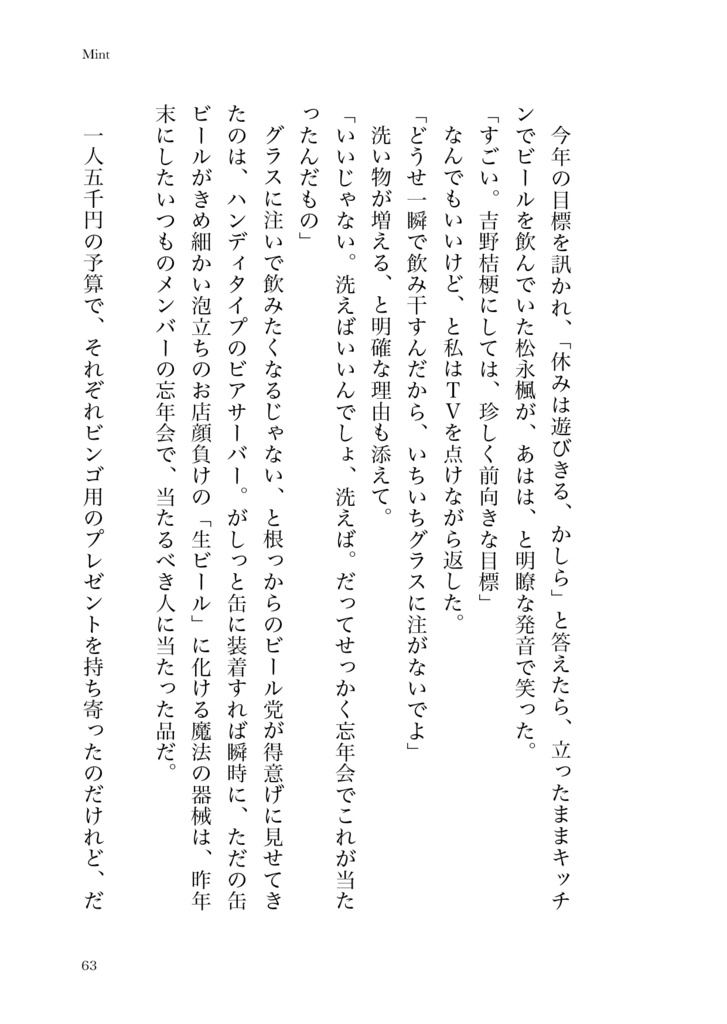 Mint
　今年の目標を訊かれ、「休みは遊びきる、かしら」と答えたら、立ったままキッチ
ンでビールを飲んでいた松永楓が、あはは、と明瞭な発音で笑った。
「すごい。吉野桔梗にしては、珍しく前向きな目標」
　なんでもいいけど、と私はTVを点けながら返した。
「どうせ一瞬で飲み干すんだから、いちいちグラスに注がないでよ」
　洗い物が増える、と明確な理由も添えて。
「いいじゃない。洗えばいいんでしょ、洗えば。だってせっかく忘年会でこれが当た
ったんだもの」
　グラスに注いで飲みたくなるじゃない、と根っからのビール党が得意げに見せてき
たのは、ハンディタイプのビアサーバー。がしっと缶に装着すれば瞬時に、ただの缶
ビールがきめ細かい泡立ちのお店顔負けの「生ビール」に化ける魔法の器械は、昨年
末にしたいつものメンバーの忘年会で、当たるべき人に当たった品だ。
　一人五千円の予算で、それぞれビンゴ用のプレゼントを持ち寄ったのだけれど、だ
63